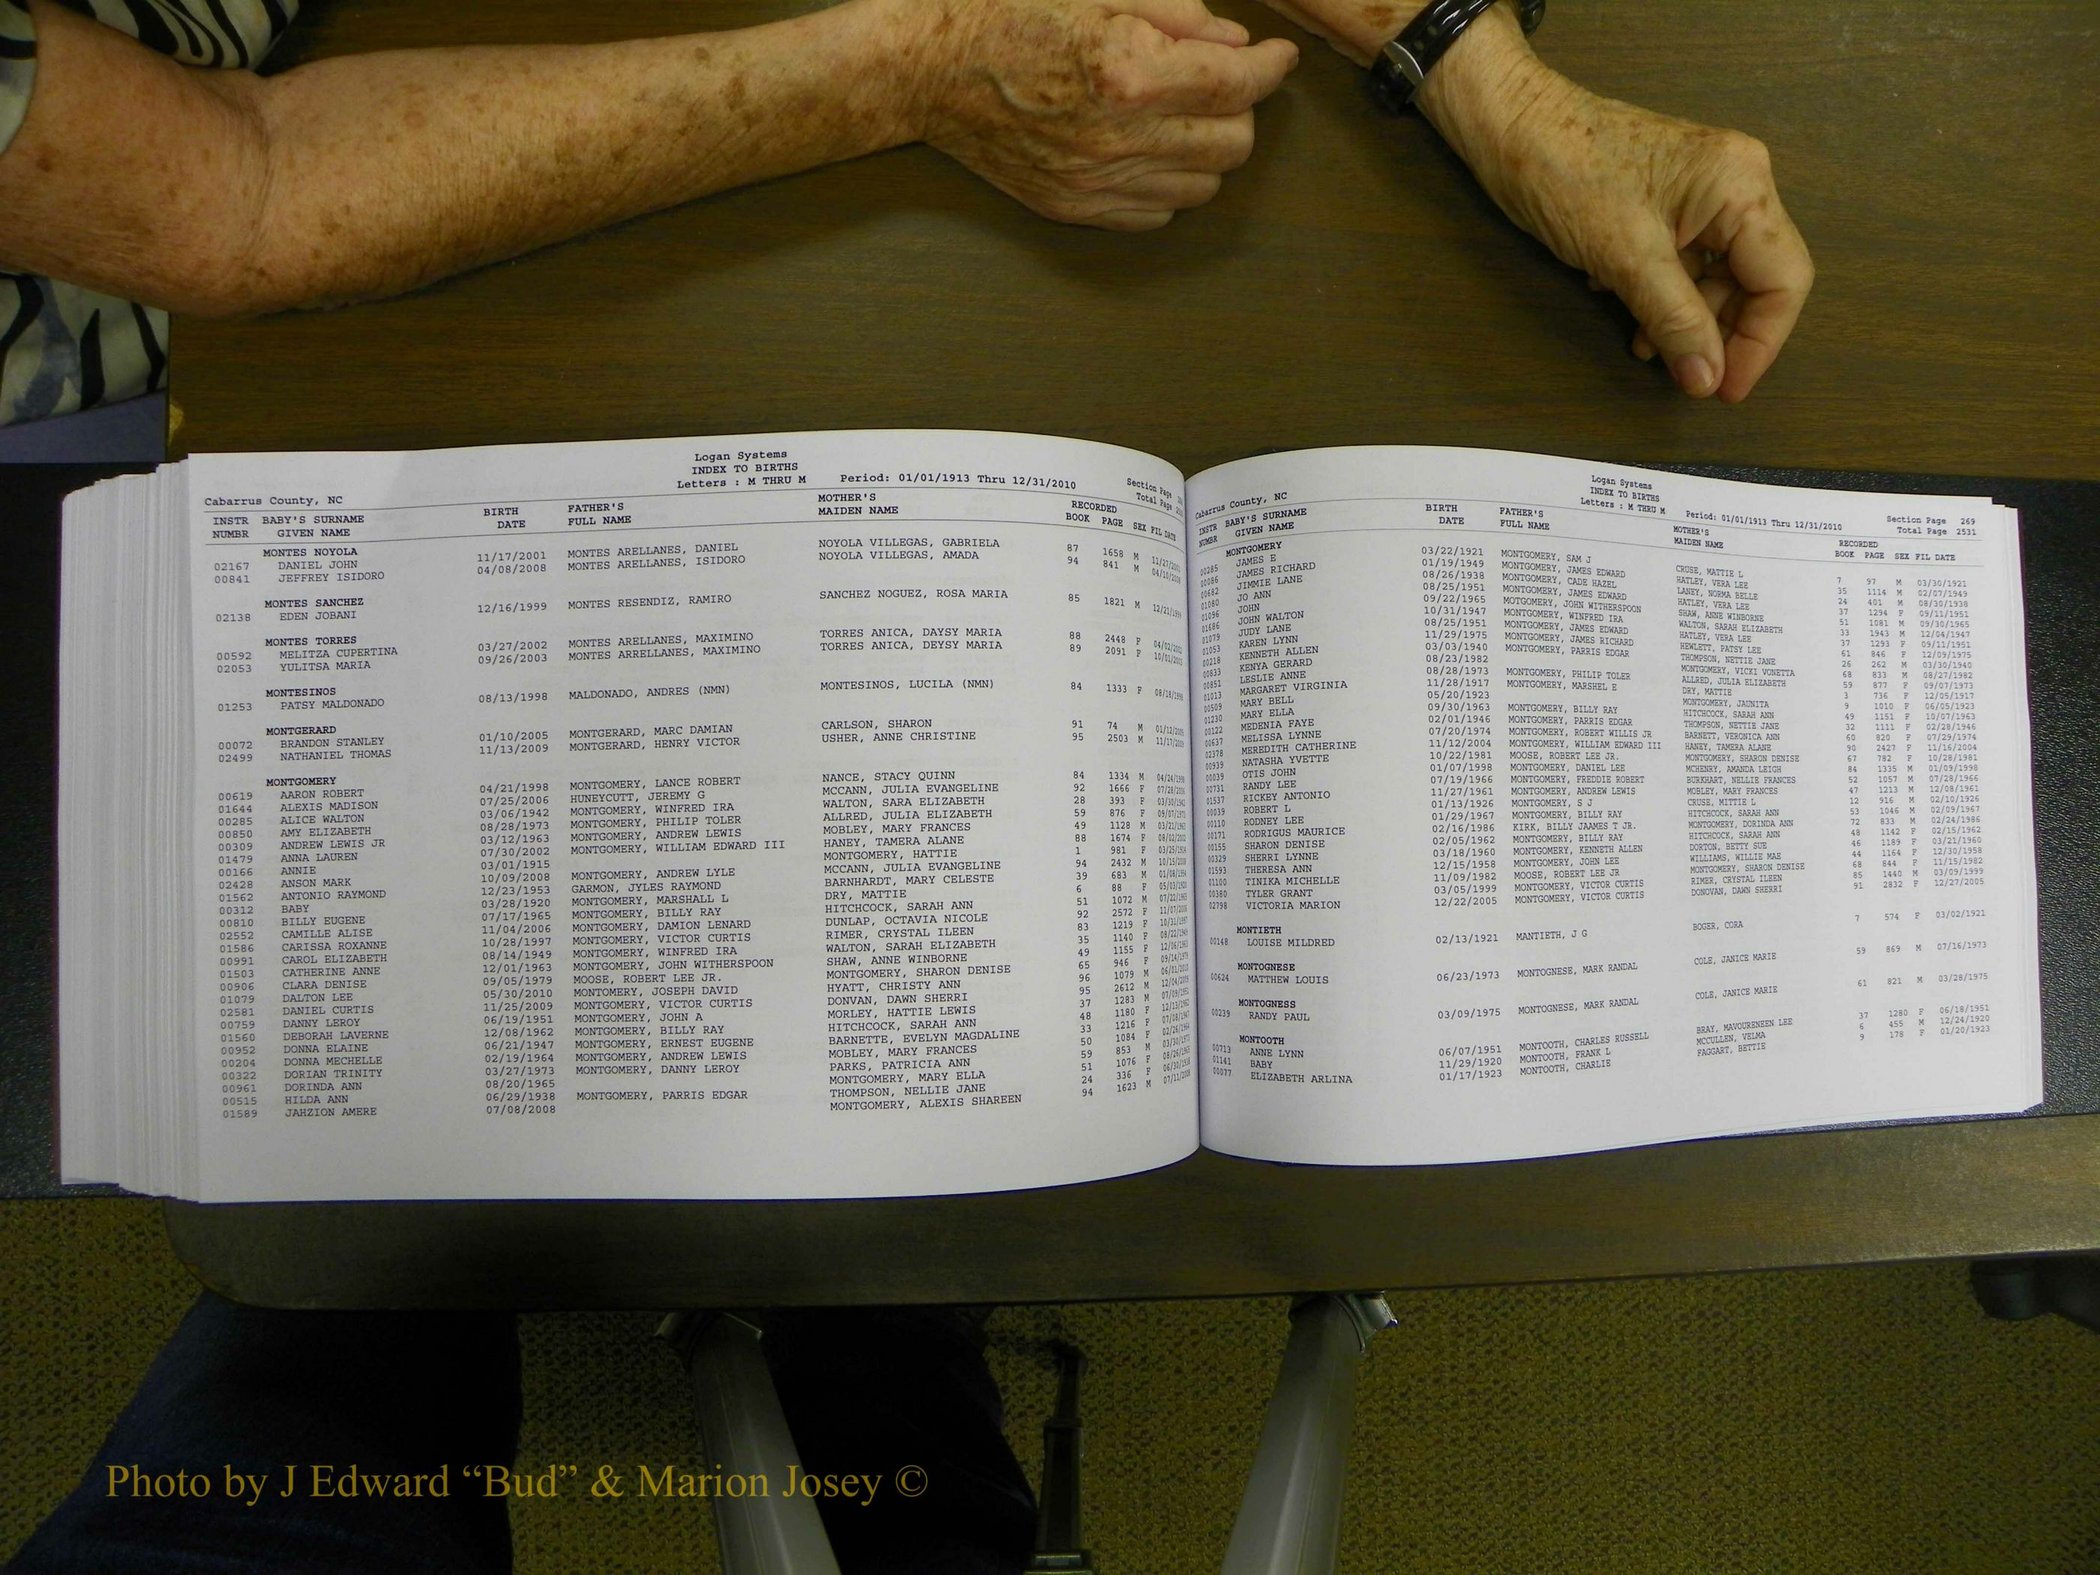 Logan Systems
INDEX TO BIRTHS
Letters : M THRU M Period: 01/01/1913 Thru 12/31/2010
Cabarrus County, NC Section Page
Total Page
INSTR BABY'S SURNAME BIRTH FATHER'S MOTHER'S RECORDED
NUMBR GIVEN NAME DATE FULL NAME MAIDEN NAME BOOK PAGE SEX FIL DATE
MONTES NOYOLA
02167 DANIEL JOHN 11/17/2001 MONTES ARELLANES, DANIEL NOYOLA VILLEGAS, GABRIELA 87 1658 M 11/27/2001
00841 JEFFREY ISIDORO 04/08/2008 MONTES ARELLANES, ISIDORO NOYOLA VILLEGAS, AMADA 94 841 M 04/10/2008
MONTES SANCHEZ
02138 EDEN JOBANI 12/16/1999 MONTES RESENDIZ, RAMIRO SANCHEZ NOGUEZ, ROSA MARIA 85 1821 M 12/21/1999
MONTES TORRES
00592 MELITZA CUPERTINA 03/27/2002 MONTES ARELLANES, MAXIMINO TORRES ANICA, DAYSY MARIA 88 2448 F 04/02/2002
02053 YULITSA MARIA 09/26/2003 MONTES ARRELLANES, MAXIMINO TORRES ANICA, DEYSY MARIA 89 2091 F 10/01/2003
MONTESINOS
01253 PATSY MALDONADO 08/13/1998 MALDONADO, ANDRES (NMN) MONTESINOS, LUCILA (NMN) 84 1333 F 08/18/1998
MONTGERARD
00072 BRANDON STANLEY 01/10/2005 MONTGERARD, MARC DAMIAN CARLSON, SHARON 91 74 M 01/12/2005
02499 NATHANIEL THOMAS 11/13/2009 MONTGERARD, HENRY VICTOR USHER, ANNE CHRISTINE 95 2503 M 11/17/2009
MONTGOMERY
00619 AARON ROBERT 04/21/1998 MONTGOMERY, LANCE ROBERT NANCE, STACY QUINN 84 1334 M 04/24/1998
01644 ALEXIS MADISON 07/25/2006 HUNEYCUTT, JEREMY G MCCANN, JULIA EVANGELINE 92 1666 F 07/28/2006
00285 ALICE WALTON 03/06/1942 MONTGOMERY, WINFRED IRA WALTON, SARA ELIZABETH 28 393 F 03/30/1942
00850 AMY ELIZABETH 08/28/1973 MONTGOMERY, PHILIP TOLER ALLRED, JULIA ELIZABETH 59 876 F 09/07/1973
00309 ANDREW LEWIS JR 03/12/1963 MONTGOMERY, ANDREW LEWIS MOBLEY, MARY FRANCES 49 1128 M 03/21/1963
01479 ANNA LAUREN 07/30/2002 MONTGOMERY, WILLIAM EDWARD III HANEY, TAMERA ALANE 88 1674 F 08/02/2002
00166 ANNIE 03/01/1915 MONTGOMERY, HATTIE 1 981 F
02428 ANSON MARK 10/09/2008 MONTGOMERY, ANDREW LYLE MCCANN, JULIA EVANGELINE 94 2432 M 10/15/2008
01562 ANTONIO RAYMOND 12/23/1953 GARMON, JYLES RAYMOND BARNHARDT, MARY CELESTE 39 683 M 01/08/1954
00312 BABY 03/28/1920 MONTGOMERY, MARSHALL L DRY, MATTIE 6 88 F 05/03/1920
00810 BILLY EUGENE 07/17/1965 MONTGOMERY, BILLY RAY HITCHCOCK, SARAH ANN 51 1072 M 07/22/1965
02552 CAMILLE ALISE 11/04/2006 MONTGOMERY, DAMION LENARD DUNLAP, OCTAVIA NICOLE 92 2572 F 11/07/2006
01586 CARISSA ROXANNE 10/28/1997 MONTGOMERY, VICTOR CURTIS RIMER, CRYSTAL ILEEN 83 1219 F 10/31/1997
00991 CAROL ELIZABETH 08/14/1949 MONTGOMERY, WINFRED IRA WALTON, SARAH ELIZABETH 35 1140 F 08/22/1949
01503 CATHERINE ANNE 12/01/1963 MONTGOMERY, JOHN WITHERSPOON SHAW, ANNE WINBORNE 49 1155 F 12/06/1963
00906 CLARA DENISE 09/05/1979 MOOSE, ROBERT LEE JR. MONTGOMERY, SHARON DENISE 65 946 F 09/14/1979
01079 DALTON LEE 05/30/2010 MONTOMERY, JOSEPH DAVID HYATT, CHRISTY ANN 96 1079 M 06/01/2010
02581 DANIEL CURTIS 11/25/2009 MONTGOMERY, VICTOR CURTIS DONVAN, DAWN SHERRI 95 2612 M 12/04/2009
00759 DANNY LEROY 06/19/1951 MONTGOMERY, JOHN A MORLEY, HATTIE LEWIS 37 1283 M 07/09/1951
01560 DEBORAH LAVERNE 12/08/1962 MONTGOMERY, BILLY RAY HITCHCOCK, SARAH ANN 48 1180 F 12/13/1962
00952 DONNA ELAINE 06/21/1947 MONTGOMERY, ERNEST EUGENE BARNETTE, EVELYN MAGDALINE 33 1216 F 07/08/1947
00204 DONNA MECHELLE 02/19/1964 MONTGOMERY, ANDREW LEWIS MOBLEY, MARY FRANCES 50 1084 F 02/26/1964
00322 DORIAN TRINITY 03/27/1973 MONTGOMERY, DANNY LEROY PARKS, PATRICIA ANN 59 853 M 03/30/1973
00961 DORINDA ANN 08/20/1965 MONTGOMERY, MARY ELLA 51 1076 F 08/26/1965
00515 HILDA ANN 06/29/1938 MONTGOMERY, PARRIS EDGAR THOMPSON, NELLIE JANE 24 336 F 06/30/1938
01589 JAHZION AMERE 07/08/2008 MONTGOMERY, ALEXIS SHAREEN 94 1623 M 07/11/2008
Logan Systems
INDEX TO BIRTHS
Letters : M THRU M Period: 01/01/1913 Thru 12/31/2010
Cabarrus County, NC Section Page 269
Total Page 2531
INSTR BABY'S SURNAME BIRTH FATHER'S MOTHER'S RECORDED
NUMBR GIVEN NAME DATE FULL NAME MAIDEN NAME BOOK PAGE SEX FIL DATE
MONTGOMERY
00285 JAMES E 03/22/1921 MONTGOMERY, SAM J CRUSE, MATTIE L 7 97 M 03/30/1921
00086 JAMES RICHARD 01/19/1949 MONTGOMERY, JAMES EDWARD HATLEY, VERA LEE 35 1114 M 02/07/1949
00682 JIMMIE LANE 08/26/1938 MONTGOMERY, CADE HAZEL LANEY, NORMA BELLE 24 401 M 08/30/1938
01080 JO ANN 08/25/1951 MONTGOMERY, JAMES EDWARD HATLEY, VERA LEE 37 1294 F 09/11/1951
01096 JOHN 09/22/1965 MOTGOMERY, JOHN WITHERSPOON SHAW, ANNE WINBORNE 51 1081 M 09/30/1965
01686 JOHN WALTON 10/31/1947 MONTGOMERY, WINFRED IRA WALTON, SARAH ELIZABETH 33 1943 M 12/04/1947
01079 JUDY LANE 08/25/1951 MONTGOMERY, JAMES EDWARD HATLEY, VERA LEE 37 1293 F 09/11/1951
01053 KAREN LYNN 11/29/1975 MONTGOMERY, JAMES RICHARD HEWLETT, PATSY LEE 61 846 F 12/09/1975
00218 KENNETH ALLEN 03/03/1940 MONTGOMERY, PARRIS EDGAR THOMPSON, NETTIE JANE 26 262 M 03/30/1940
00833 KENYA GERARD 08/23/1982 MONTGOMERY, VICKI VONETTA 68 833 M 08/27/1982
00851 LESLIE ANNE 08/28/1973 MONTGOMERY, PHILIP TOLER ALLRED, JULIA ELIZABETH 59 877 F 09/07/1973
01013 MARGARET VIRGINIA 11/28/1917 MONTGOMERY, MARSHEL E DRY, MATTIE 3 736 F 12/05/1917
00509 MARY BELL 05/20/1923 MONTGOMERY, JAUNITA 9 1010 F 06/05/1923
01230 MARY ELLA 09/30/1963 MONTGOMERY, BILLY RAY HITCHCOCK, SARAH ANN 49 1151 F 10/07/1963
00122 MEDENIA FAYE 02/01/1946 MONTGOMERY, PARRIS EDGAR THOMPSON, NETTIE JANE 32 1111 F 02/28/1946
00637 MELISSA LYNNE 07/20/1974 MONTGOMERY, ROBERT WILLIS JR BARNETT, VERONICA ANN 60 820 F 07/29/1974
02378 MEREDITH CATHERINE 11/12/2004 MONTGOMERY, WILLIAM EDWARD III HANEY, TAMERA ALANE 90 2427 F 11/16/2004
00939 NATASHA YVETTE 10/22/1981 MOOSE, ROBERT LEE JR. MONTGOMERY, SHARON DENISE 67 782 F 10/28/1981
00039 OTIS JOHN 01/07/1998 MONTGOMERY, DANIEL LEE MCHENRY, AMANDA LEIGH 84 1335 M 01/09/1998
00731 RANDY LEE 07/19/1966 MONTGOMERY, FREDDIE ROBERT BURKHART, NELLIE FRANCES 52 1057 M 07/28/1966
01537 RICKEY ANTONIO 11/27/1961 MONTGOMERY, ANDREW LEWIS MOBLEY, MARY FRANCES 47 1213 M 12/08/1961
00039 ROBERT L 01/13/1926 MONTGOMERY, S J CRUSE, MITTIE L 12 916 M 02/10/1926
00110 RODNEY LEE 01/29/1967 MONTGOMERY, BILLY RAY HITCHCOCK, SARAH ANN 53 1046 M 02/09/1967
00171 RODRIGUS MAURICE 02/16/1986 KIRK, BILLY JAAMES T JR. MONTGOMERY, DORINDA ANN 72 833 M 02/24/1986
00155 SHARON DENISE 02/05/1962 MONTGOMERY, BILLY RAY HITCHCOCK, SARAH ANN 48 1142 F 02/15/1962
00329 SHERRI LYNNE 03/18/1960 MONTGOMERY, KENNETH ALLEN DORTON, BETTY SUE 46 1189 F 03/21/1960
01593 THERESA ANN 12/15/1958 MONTGOMERY, JOHN LEE WILLIAMS, WILLIE MAE 44 1164 F 12/30/1958
01100 TINIKA MICHELLE 11/09/1982 MOOSE, ROBERT LEE JR MONTGOMERY, SHARON DENISE 68 844 F 11/15/1982
00380 TYLER GRANT 03/05/1999 MONTGOMERY, VICTOR CURTIS RIMER, CRYSTAL ILEEN 85 1440 M 03/09/1999
02798 VICTORIA MARION 12/22/2005 MONTGOMERY, VICTOR CURTIS DONOVAN, DAWN SHERRI 91 2832 F 12/27/2005
MONTIETH
00148 LOUISE MILDRED 02/13/1921 MANTIETH, J G BOGER, CORA 7 574 F 03/02/1921
MONTOGNESE
00624 MATTHEW LOUIS 06/23/1973 MONTOGNESE, MARK RANDAL COLE, JANICE MARIE 59 869 M 07/16/1973
MONTOGNESS
00239 RANDY PAUL 03/09/1975 MONTOGNESE, MARK RANDAL COLE, JANICE MARIE 61 821 M 03/28/1975
MONTOOTH
00713 ANNE LYNN 06/07/1951 MONTOOTH, CHARLES RUSSELL BRAY, MAVOURENEEN LEE 37 1280 F 06/18/1951
01141 BABY 11/29/1920 MONTOOTH, FRANK L MCCULLEN, VELMA 6 455 M 12/24/1920
00077 ELIZABETH ARLINA 01/17/1923 MONTOOTH, CHARLIE FAGGART, BETTIE 9 178 F 01/20/1923
Photo by J Edward “Bud” & Marion Josey ©